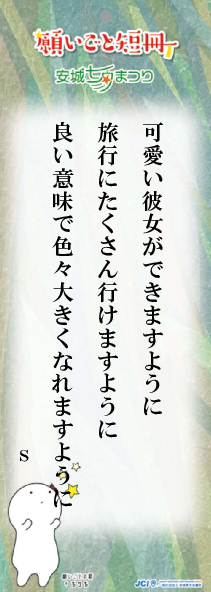 願いごと短冊
安城七夕まつり
可愛い彼女ができますように
旅行にたくさん行けますように
良い意味で色々大きくなれますように
s
JCI